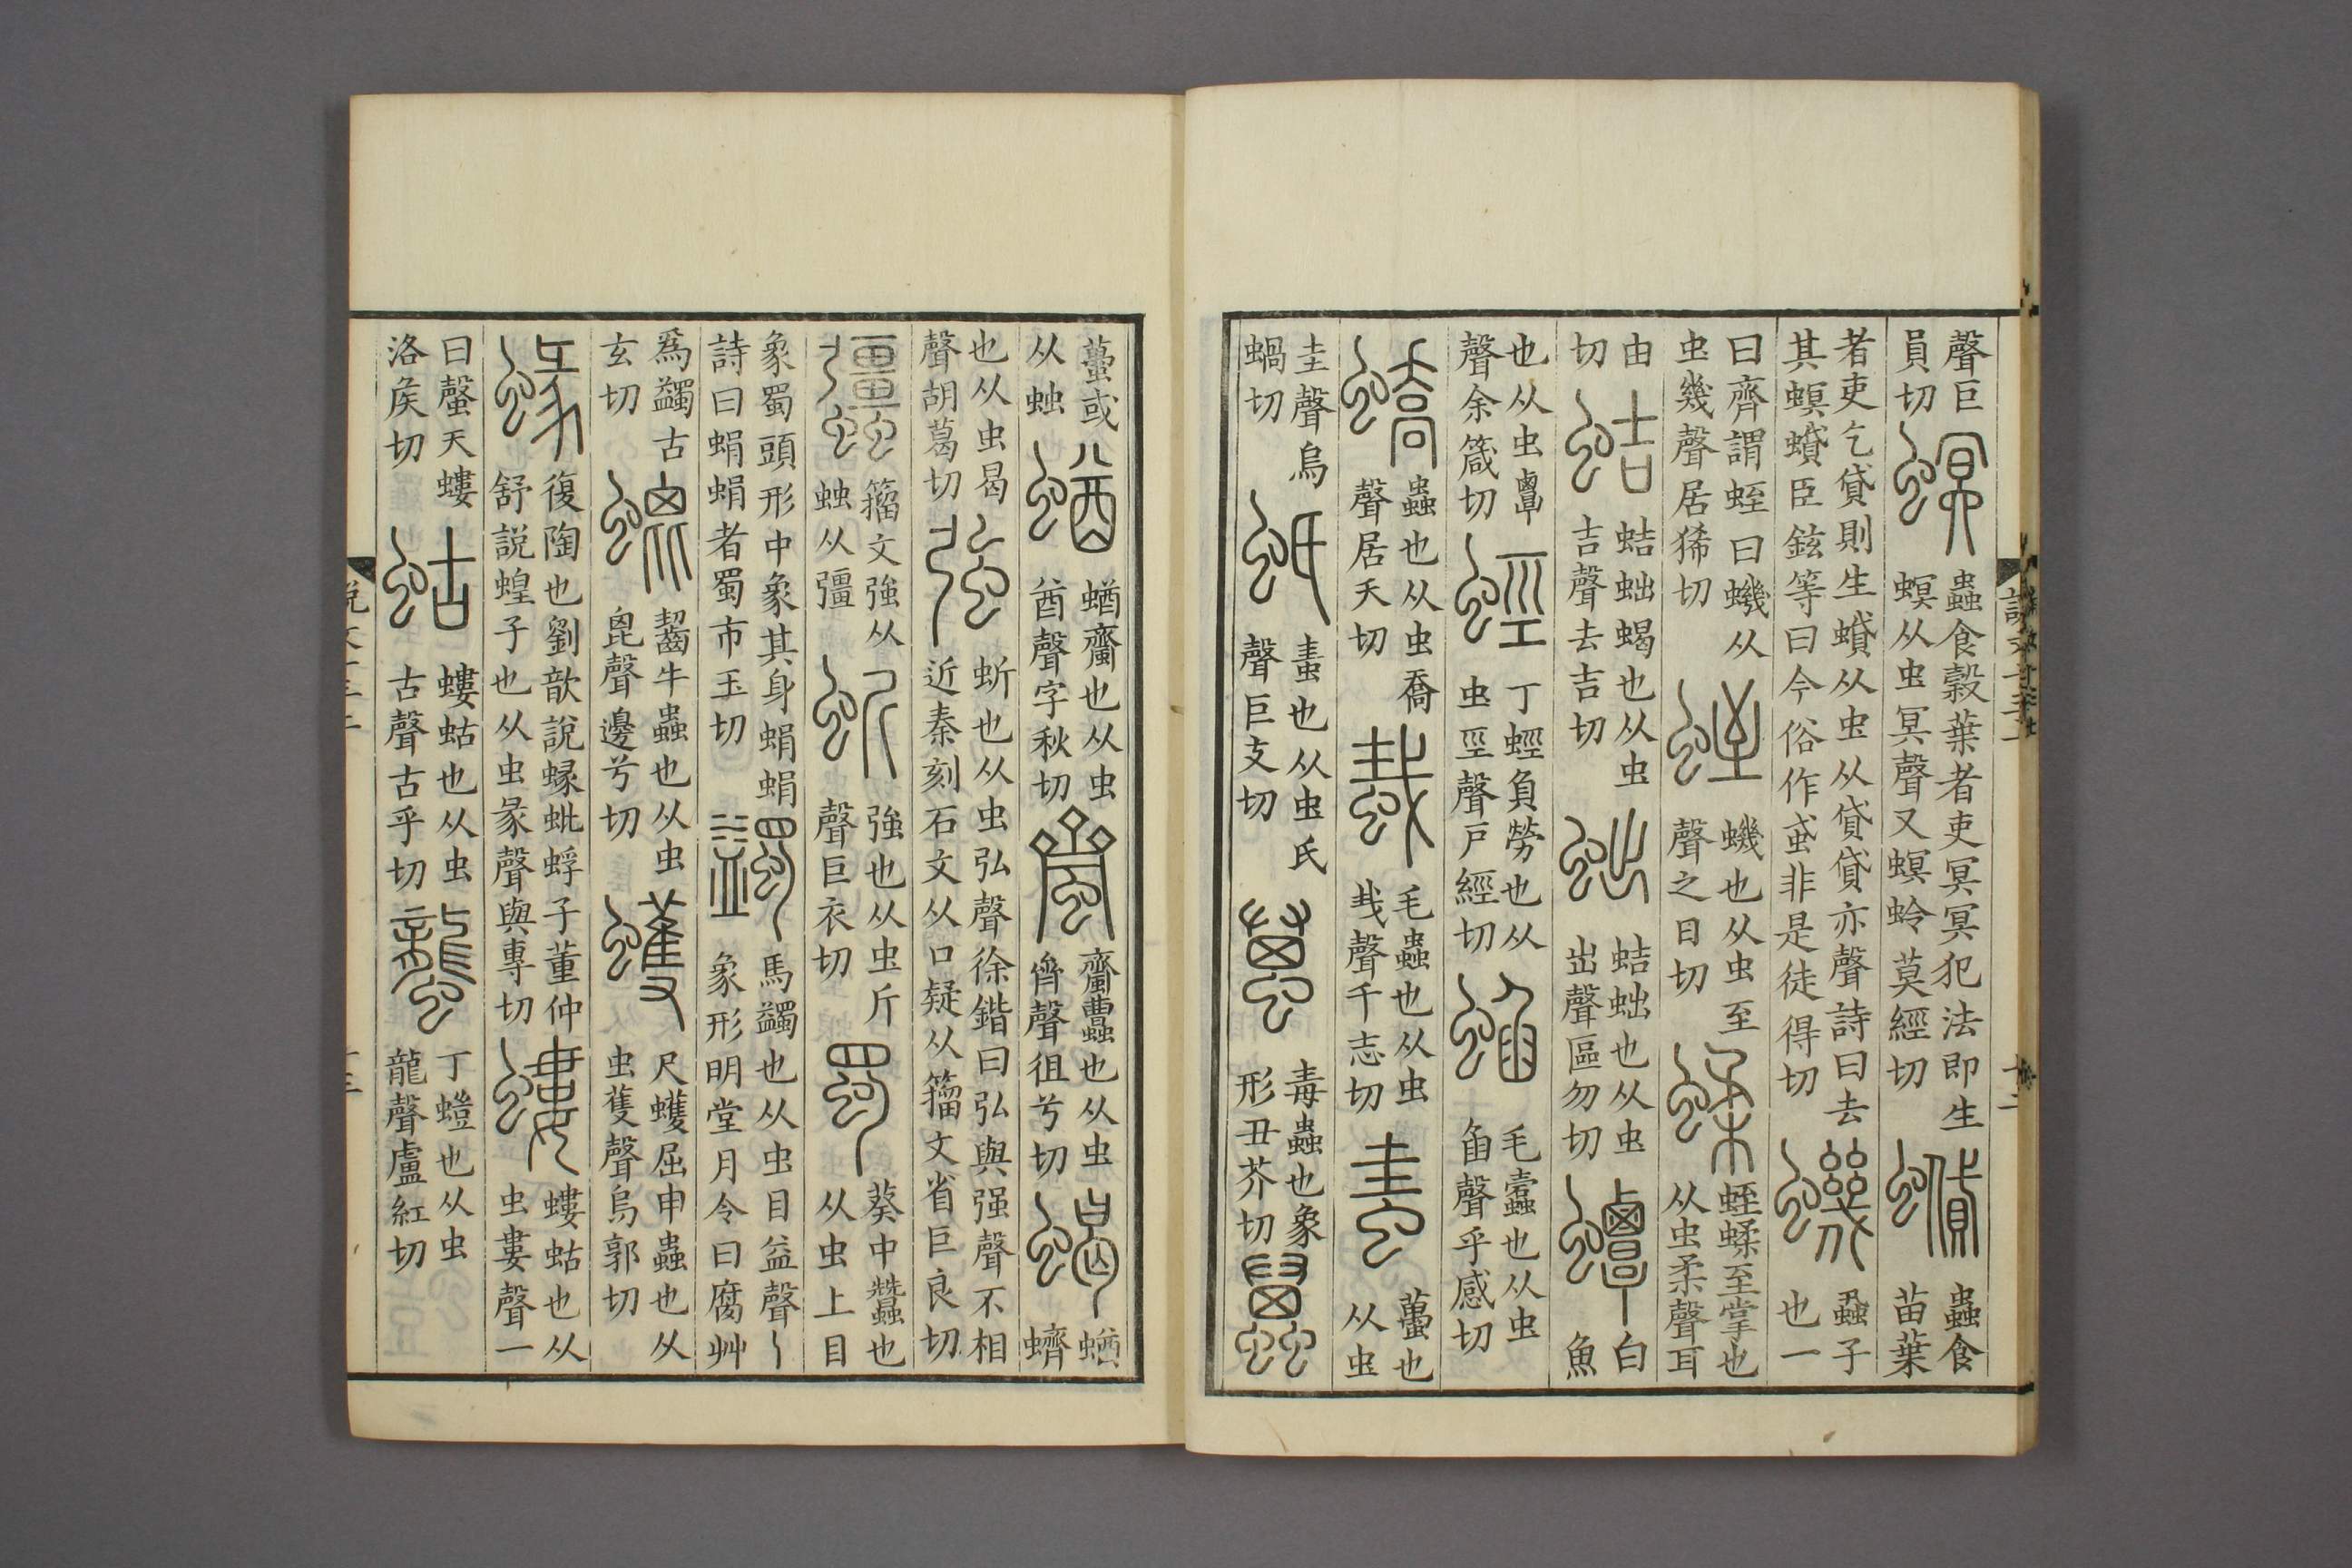 聲巨員切 螟 蟲食穀葉者吏冥冥犯法即生螟从虫冥聲又螟蛉莫經切 蟘 蟲食苗葉
者吏乞貸則生蟘从虫从貸貸亦聲詩曰去其螟蟘臣鉉等曰今俗作非是徒得切 蟣 蝨子也一
曰齊謂蛭曰蟣从虫幾聲居狶切 蛭 蟣也从虫至聲之日切 蝚 蛭蝚至掌也从虫柔聲耳
由切 蛣 蛣䖦蝎也从虫吉聲去吉切 䖦 蛣䖦也从虫出聲區勿切 蟫 白魚
也从虫覃聲余箴切 蛵 丁蛵負勞也从虫巠聲戶經切 蜭 毛蠹也从虫臽聲乎感切
蟜 蟲也从虫喬聲居夭切 蛓 毛蟲也从虫𢦏聲千志切 蛙 蠆也从虫
圭聲烏蝸切 蚔 蛙也从虫氏聲巨支切 蠆 毒蟲也象形丑芥切
蠆或从䖵 蝤 蝤齏也从虫酋聲字秋切 齏 齏蠹也从虫齊聲徂兮切 蝎 蝤蠐
也从虫曷聲胡葛切 強 蚚也从虫弘聲徐鍇曰弘與强聲不相近秦刻石文从口疑从籀文省巨良切
籀文強从䖵从彊 蚚 強也从虫斤聲巨衣切 蜀 葵中蠶也从虫上目
象蜀頭形中象其身蜎蜎詩曰蜎蜎者蜀市玉切 蠲 馬蠲也从虫目益聲丨象形明堂月令曰腐艸
爲蠲古玄切 螕 齧牛蟲也从虫毘聲邊兮切 蠖 尺蠖屈申蟲也从虫蒦聲烏郭切
蝝 復陶也劉歆說蝝蚍蜉子董仲舒說蝗子也从虫彖聲與專切 螻 螻蛄也从虫婁聲一
曰螜天螻洛矦切 蛄 螻蛄也从虫古聲古乎切 蠪 丁螘也从虫龍聲盧紅切